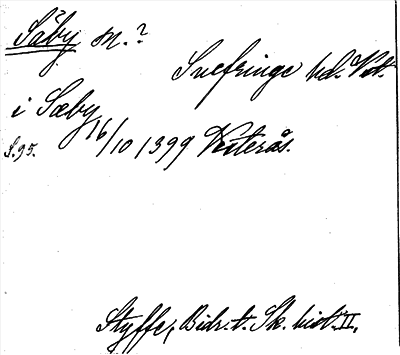 Säby sn.?
Snefringe hd. Vstm.
i Sæby
16/10 1399 Vesterås.
S. 95.
Styffe, Bidr. t. Sk. hist. II.